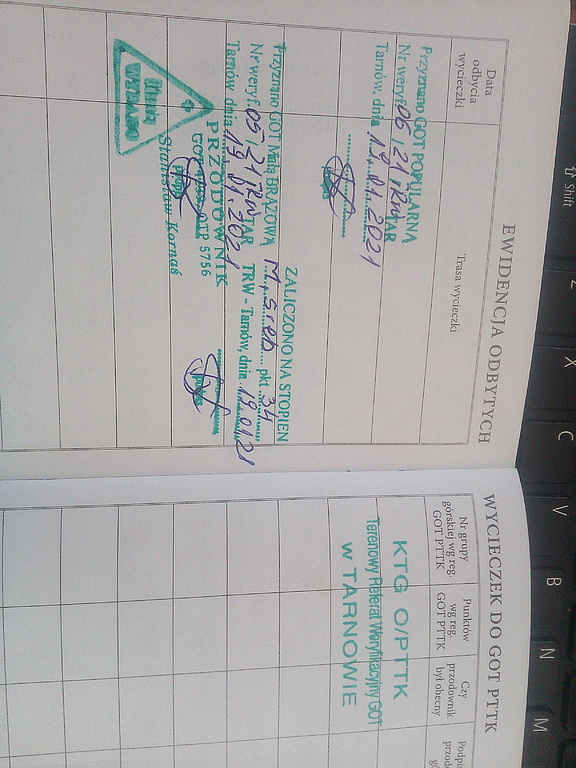 EWIDENCJA ODBYTYCH
Data
odbycia
wycieczki
Trasa wycieczki
Przyznano GOT POPULARNA
Nr weryf. 06/21/RW/TAR
Tarnów, dnia 19.01.2021
ZALICZONO NA STOPIEŃ
M. sreb pkt 34
TRW - Tarnów, dnia 19.01.21
Przyznano GOT Mała BRĄZOWA
Nr weryf. 05/21/RW/TAR
Tarnów, dnia 19.01.2021
PRZODOWNIK
5756
Stanisław Kornaś
WYCIECZEK DO GOT PTTK
Nr grupy
górskiej wg reg.
GOT PTTK
Punktów
wg reg.
GOT PTTK
Czy
przodownik
był obecny
KTG O/PTTK
Terenowy Referat Weryfikacyjny GOT
w TARNOWIE
Shift
Z
X
C
V
B
N
M